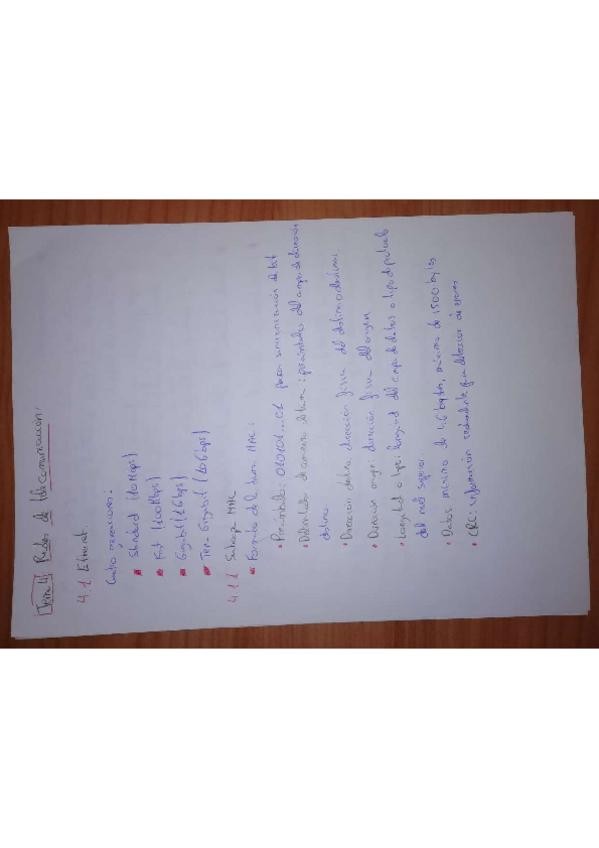 Tema 4: Redes de telecomunicación.
4.1 Ethernet.
Cuatro generaciones:
Standard (10 Mbps)
Fast (100 Mbps)
Gigabit (1 Gbps)
Gigabit (10 Gbps)
4.1.1 Subcapa MAC
Formato de la trama MAC:
Preámbulo: 010101...01 para sincronización de bit
Delimitador de comienzo de trama: del campo de dirección
destino.
Dirección destino: dirección física del destino o destinos.
Dirección origen: dirección física del origen
Longitud o tipo: longitud del campo de datos o tipo de protocolo
del nivel superior
Datos: mínimo de 46 bytes, máximo de 1500 bytes
CRC: información redundante para detección de errores